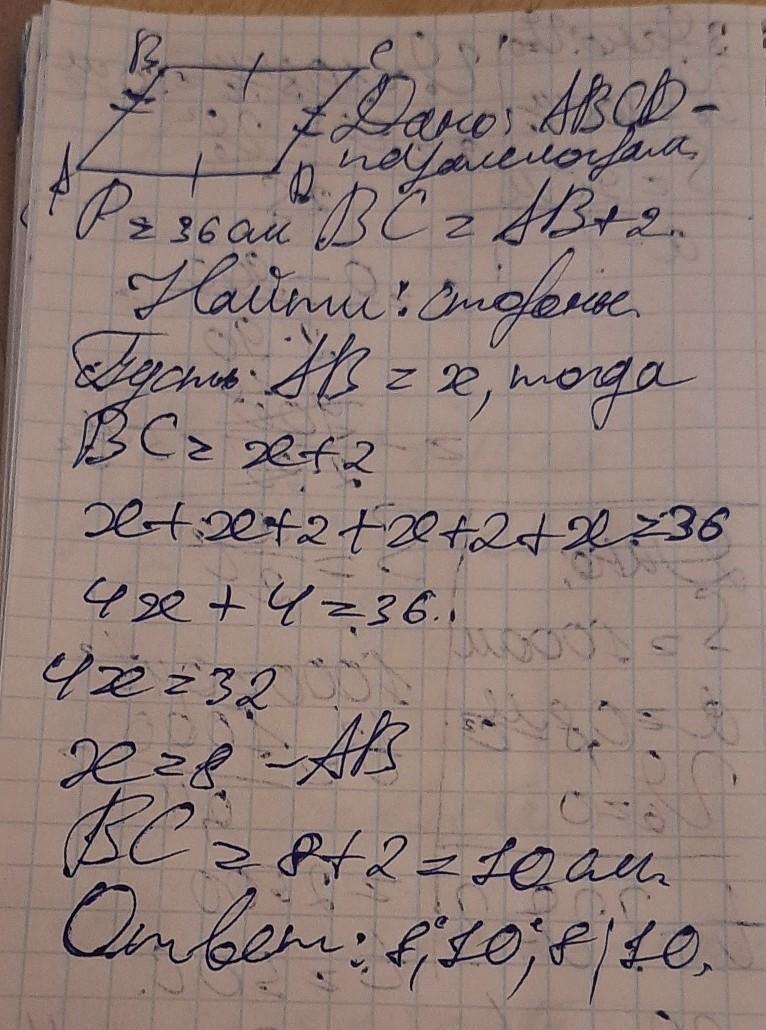 B C
A D
Дано: ABCD -
параллелограм.
P = 36 см BC = AB + 2.
Найти: стороны.
Пусть AB = x, тогда
BC = x + 2
x + x + 2 + x + 2 + x = 36
4x + 4 = 36.
4x = 32
x = 8 - AB
BC = 8 + 2 = 10 см.
Ответ: 8; 10; 8; 10.